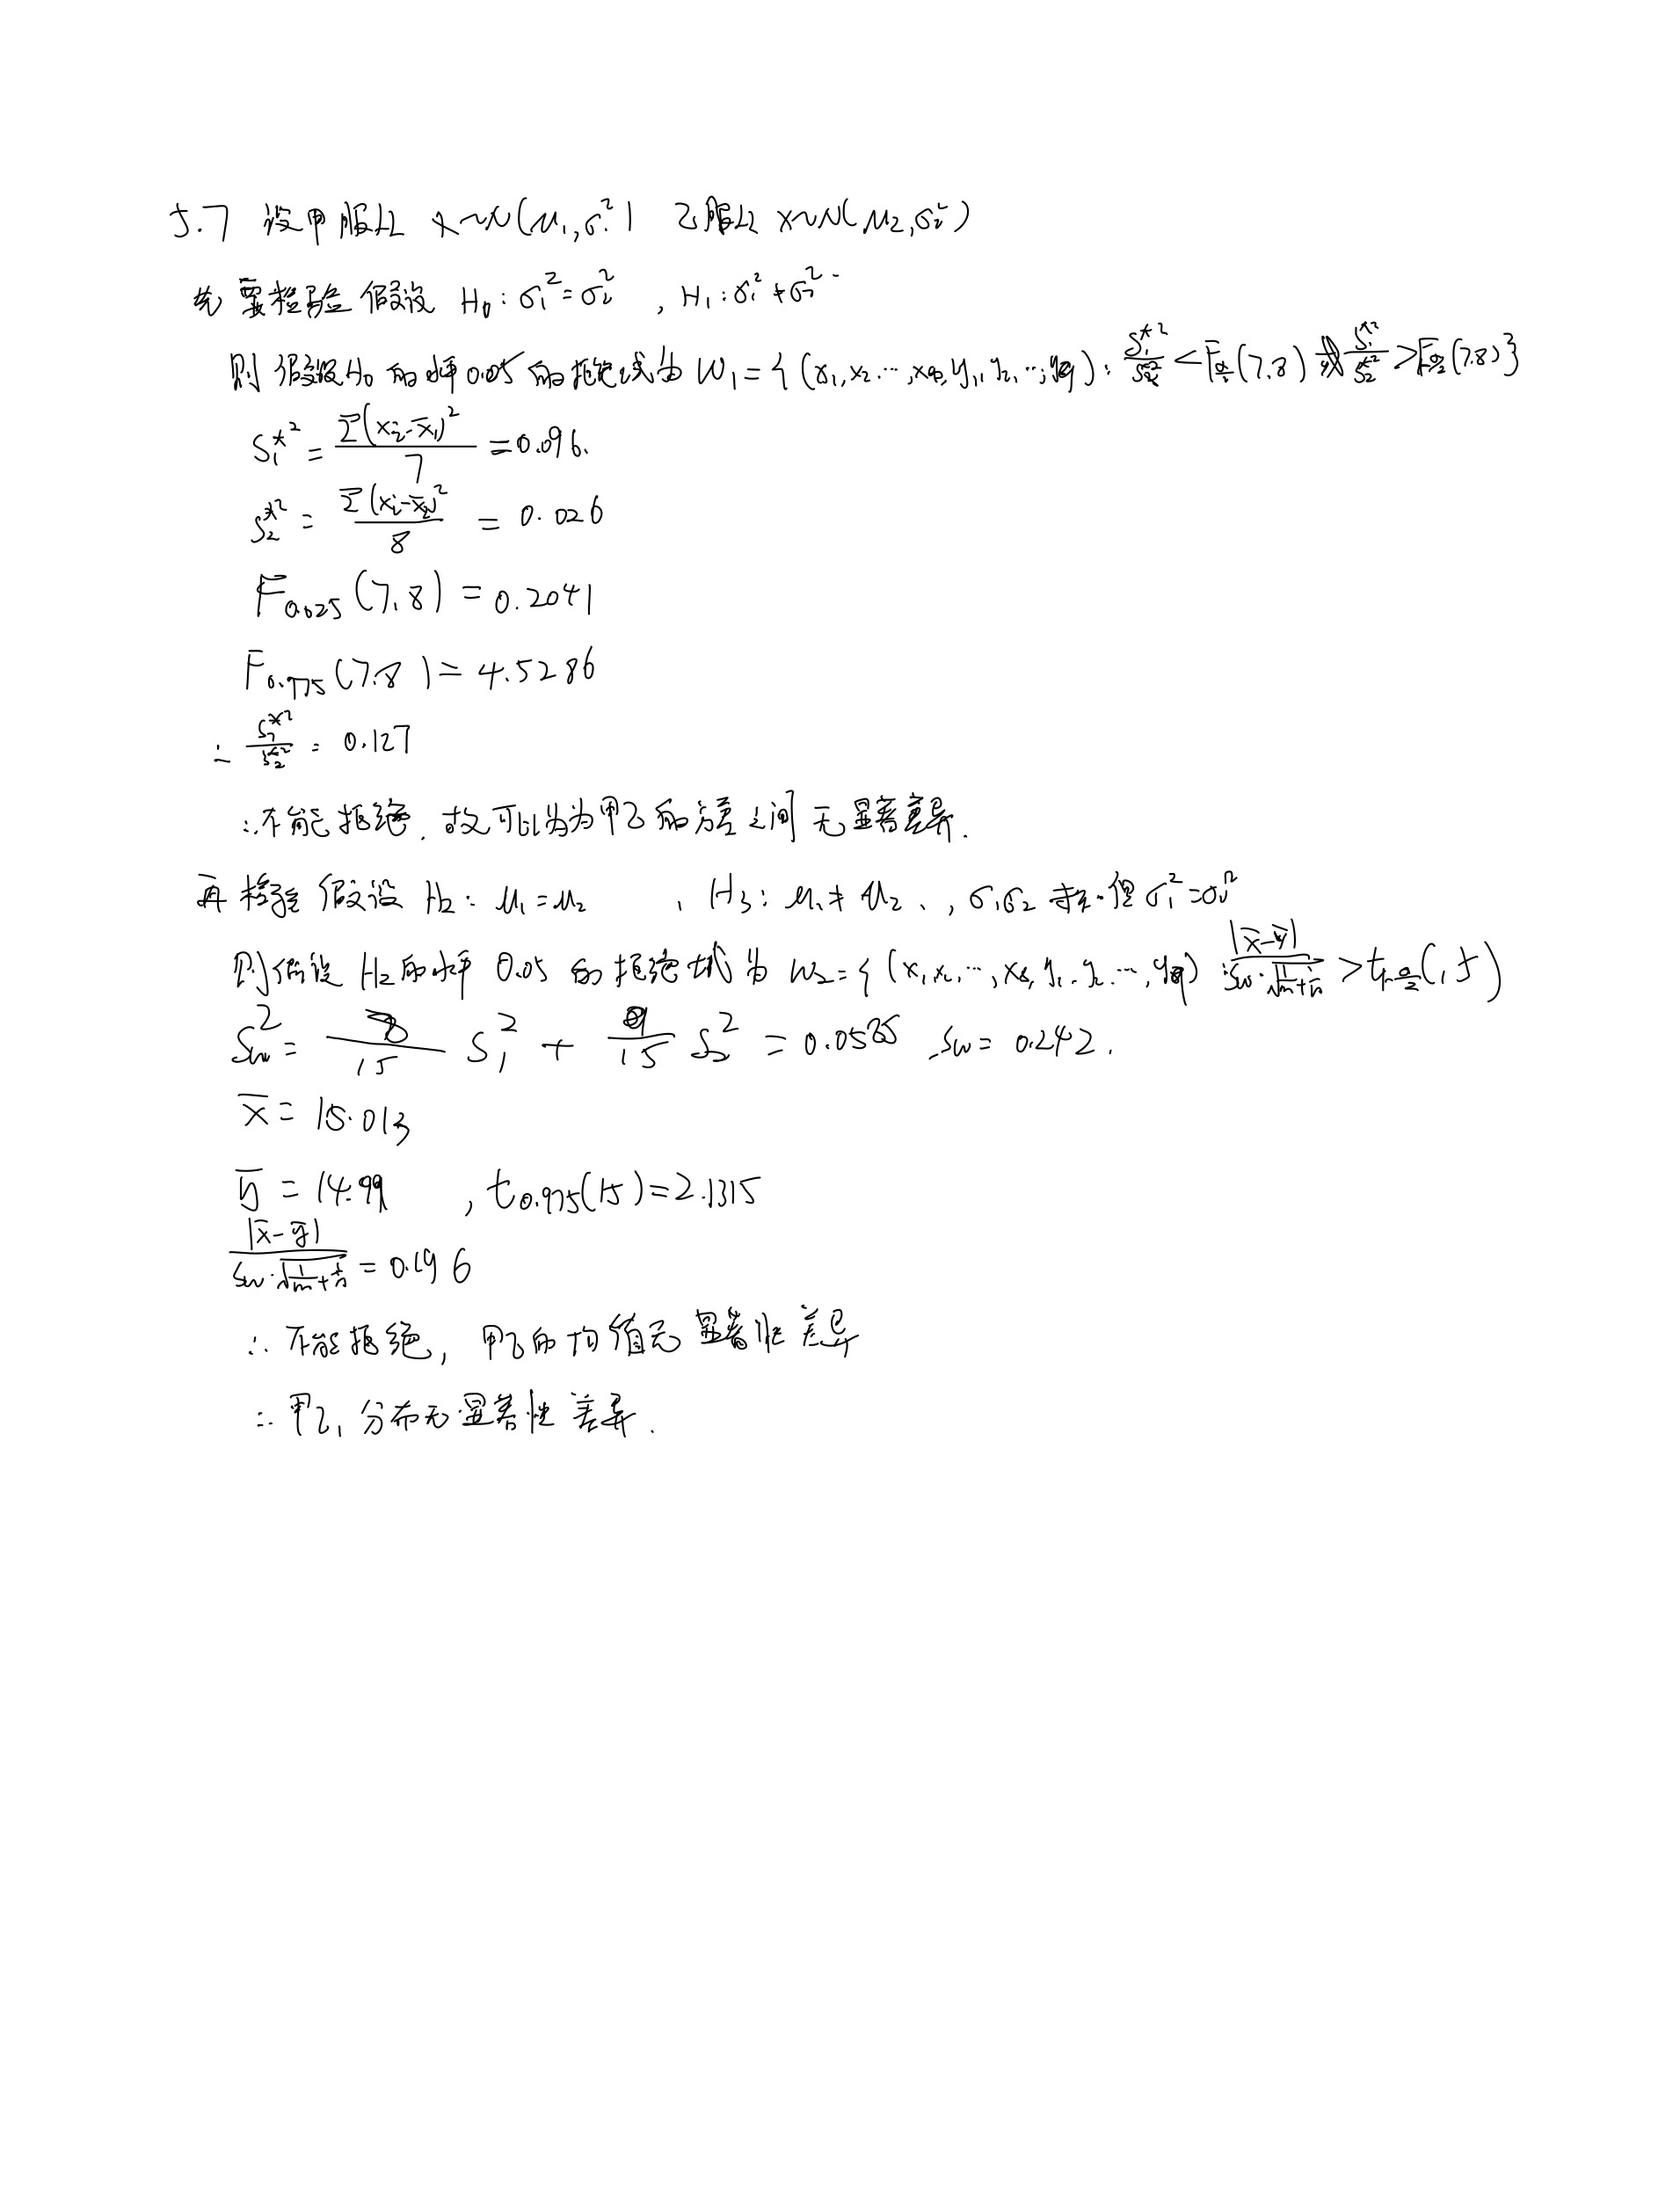 5.7 设甲服从 X~N(μ₁,σ₁²) 乙服从 X~N(μ₂,σ₂²)
先要检验假设 H₀: σ₁²=σ₂² , H₁: σ₁²≠σ₂²
则假设H₀的水平0.05的拒绝域为 W₁={(x₁,x₂…,x₈,y₁,y₂,…,y₉): S₁*²/S₂*² < F_{α/2}(7.8) 或 S₁*²/S₂*² > F (7.8)}
S₁*² = Σ(xᵢ-x̄₁)²/7 = 0.096.
S₂*² = Σ(xᵢ-x̄₂)²/8 = 0.026
F₀.₀₂₅(7.8) = 0.2041
F₀.₉₇₅(7.8) = 4.5286
∴ S₁*²/S₂*² = 0.127
∴不能拒绝. 故可以为为甲乙的方差之间无显著差异.
再检验假设 H₂: μ₁=μ₂ , H₃: μ₁≠μ₂ 、, σ₁σ₂ 未知.但 σ₁²=σ₂²
则假设 H₂的水平 0.05 的拒绝域为 W₂={(x₁x₂,…,x₈,y₁.y₂…,y₉) : |x̄-ȳ|/(Sw·√(1/m+1/n)) > t_{1-α/2}(15)
Sw² = 8/15 S₁² + 9/15 S₂² = 0.0585 ,Sw = 0.242.
x̄ = 15.013
ȳ = 14.99 , t₀.₉₇₅(15)=2.1315
|x̄-ȳ|/(Sw·√(1/m+1/n)) = 0.196
∴ 不能拒绝, 甲乙的均值无显著性差异
∴ 甲乙, 分布无显著性差异.